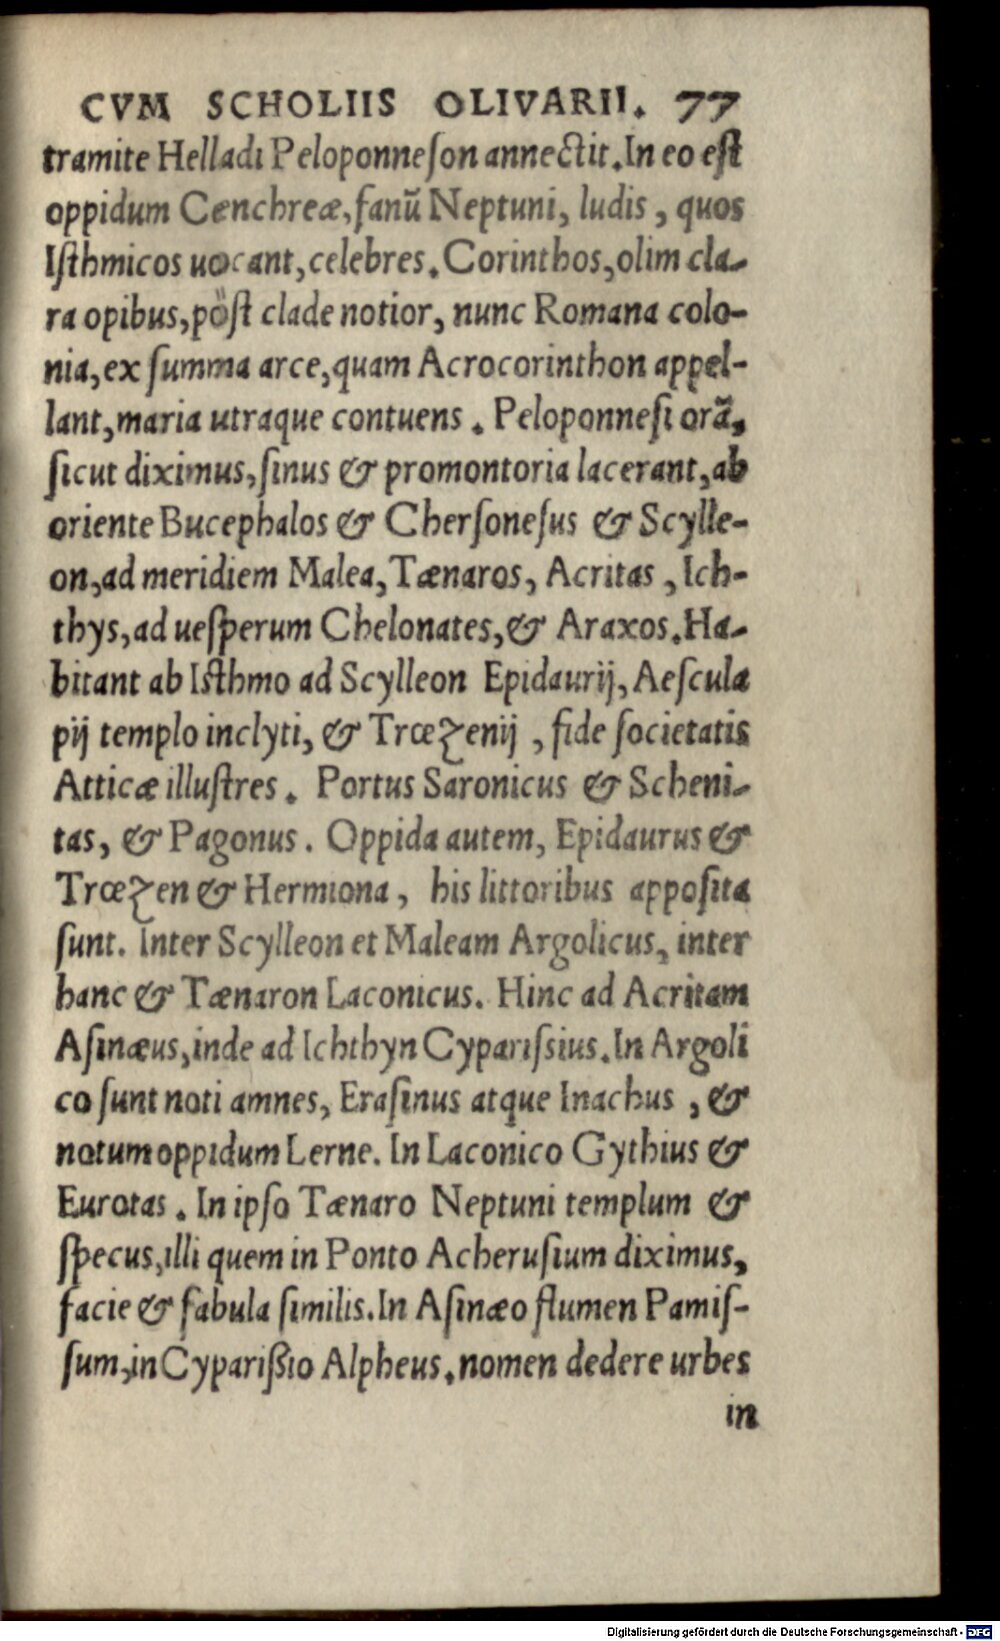 CVM SCHOLIIS OLIVARII. 77
tramite Helladi Peloponneſon annectit. In eo eſt
oppidum Cenchreæ, fanū Neptuni, ludis, quos
Iſthmicos uocant, celebres. Corinthos, olim cla-
ra opibus, pòſt clade notior, nunc Romana colo-
nia, ex ſumma arce, quam Acrocorinthon appel-
lant, maria utraque contuens. Peloponneſi orā,
ſicut diximus, ſinus & promontoria lacerant, ab
oriente Bucephalos & Cherſoneſus & Scylle-
on, ad meridiem Malea, Tænaros, Acritas, Ich-
thys, ad ueſperum Chelonates, & Araxos. Ha-
bitant ab Iſthmo ad Scylleon Epidaurij, Aeſcula
pij templo inclyti, & Trœzenij, fide ſocietatis
Atticæ illuſtres. Portus Saronicus & Scheni-
tas, & Pagonus. Oppida autem, Epidaurus &
Trœzen & Hermiona, his littoribus appoſita
ſunt. Inter Scylleon et Maleam Argolicus, inter
hanc & Tænaron Laconicus. Hinc ad Acritam
Aſinæus, inde ad Ichthyn Cypariſsius. In Argoli
co ſunt noti amnes, Eraſinus atque Inachus, &
notum oppidum Lerne. In Laconico Gythius &
Eurotas. In ipſo Tænaro Neptuni templum &
ſpecus, illi quem in Ponto Acheruſium diximus,
facie & fabula ſimilis. In Aſinæo flumen Pamiſ-
ſum, in Cyparißio Alpheus. nomen dedere urbes
in
Digitalisierung gefördert durch die Deutsche Forschungsgemeinschaft - DFG